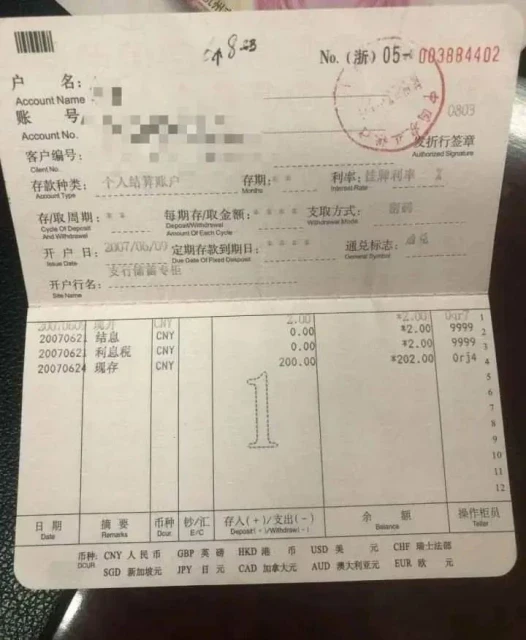 No. (浙) 05- 003884402
户 名:
Account Name
账 号
Account No.
0803
客户编号:
Client No.
发折行签章
Authorized Signature
存款种类: 个人结算账户 存期: * * 利率: 挂牌利率 %
Account Type Months Interest Rate
存/取周期: * * 每期存/取金额: * * * * 支取方式: 密码
Cycle Of Deposit And Withdrawal Deposit/Withdrawal Amount Of Each Cycle Withdrawal Mode
开 户 日: 2007/06/09 定期存款到期日: * * * * 通兑标志: 通兑
Issue Date Due Date Of Fixed Deposit General Symbol
开户行名: 支行储蓄专柜
Site Name
CNY 2.00 *2.00 1
20070621 结息 CNY 0.00 *2.00 9999 2
20070621 利息税 CNY 0.00 *2.00 9999 3
20070624 现存 CNY 200.00 *202.00 0rj4 4
5
6
7
8
9
10
11
12
1
日 期 摘 要 币种 钞/汇 存入(+)/支出(-) 余 额 操作柜员
Date Remarks Dcur. E/C Deposit(+)/Withdraw(-) Balance Teller
币种: CNY 人 民 币 GBP 英 镑 HKD 港 币 USD 美 元 CHF 瑞士法郎
DCUR. SGD 新加坡元 JPY 日 元 CAD 加拿大元 AUD 澳大利亚元 EUR 欧 元